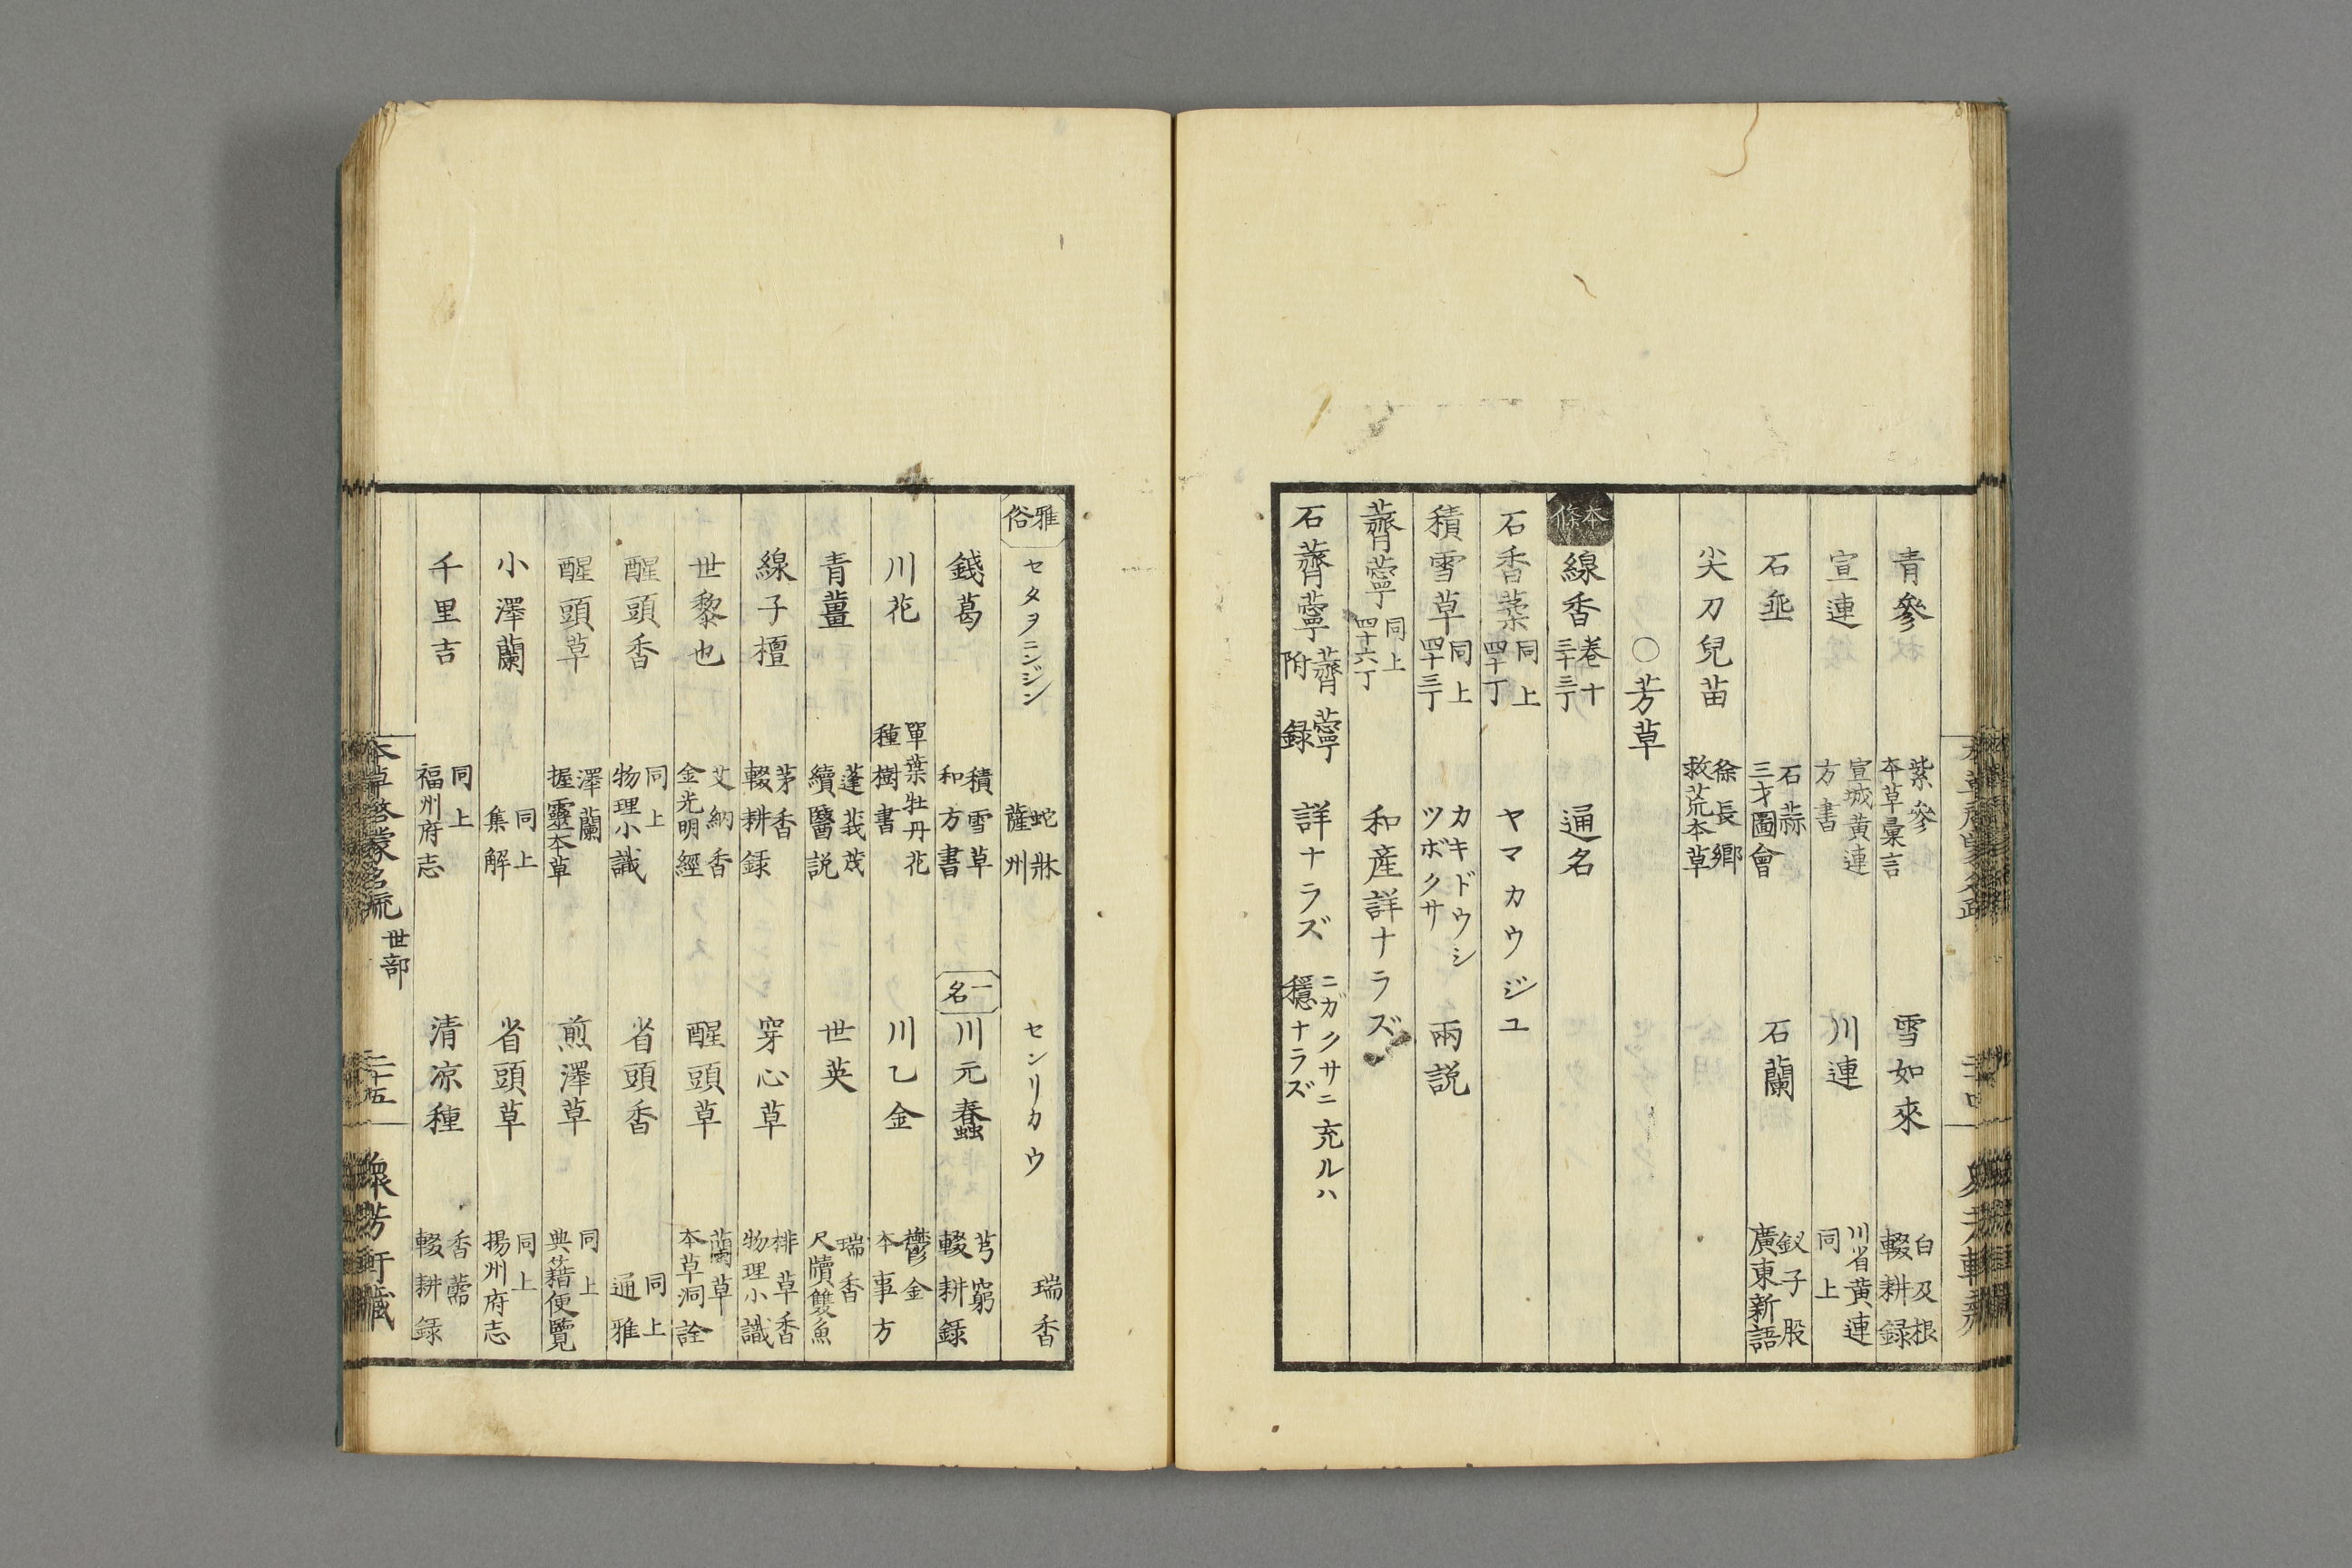 青參 紫參 本草彙言 雪如來 白及根 輟耕錄
宣連 宣城黄連 方書 川連 川省黄連 同上
石垂 石蒜 三才圖會 石蘭 釵子股 廣東新語
尖刀兒苗 徐長卿 救荒本草
○芳草
本條 線香 卷十 三十三丁 通名
石香葇 同上 四十丁 ヤマカウジユ
積雪草 同上 四十三丁 カキドウシ ツボクサ 兩説
薺薴 同上 四十六丁 和産詳ナラズ
石薺薴 薺薴 附録 詳ナラズ ニガクサニ充ルハ 穩ナラズ
雅俗 セタヲニンジン 蛇牀 薩州 センリカウ 瑞香
錢葛 積雪草 和方書 一名 川元蠢 芎窮 輟耕錄
川花 單葉牡丹花 種樹書 川乙金 鬱金 本事方
青薑 蓬莪茂 續醫説 世英 瑞香 尺牘雙魚
線子檀 茅香 輟耕錄 穿心草 排草香 物理小識
世黎也 艾納香 金光明經 醒頭草 蘭草 本草洞詮
醒頭香 同上 物理小識 省頭香 同上 通雅
醒頭草 澤蘭 握靈本草 煎澤草 同上 典籍便覽
小澤蘭 同上 集解 省頭草 同上 揚州府志
千里吉 同上 福州府志 清涼種 香薷 輟耕錄
本草啓蒙名疏 世部 二十五 衆芳軒藏